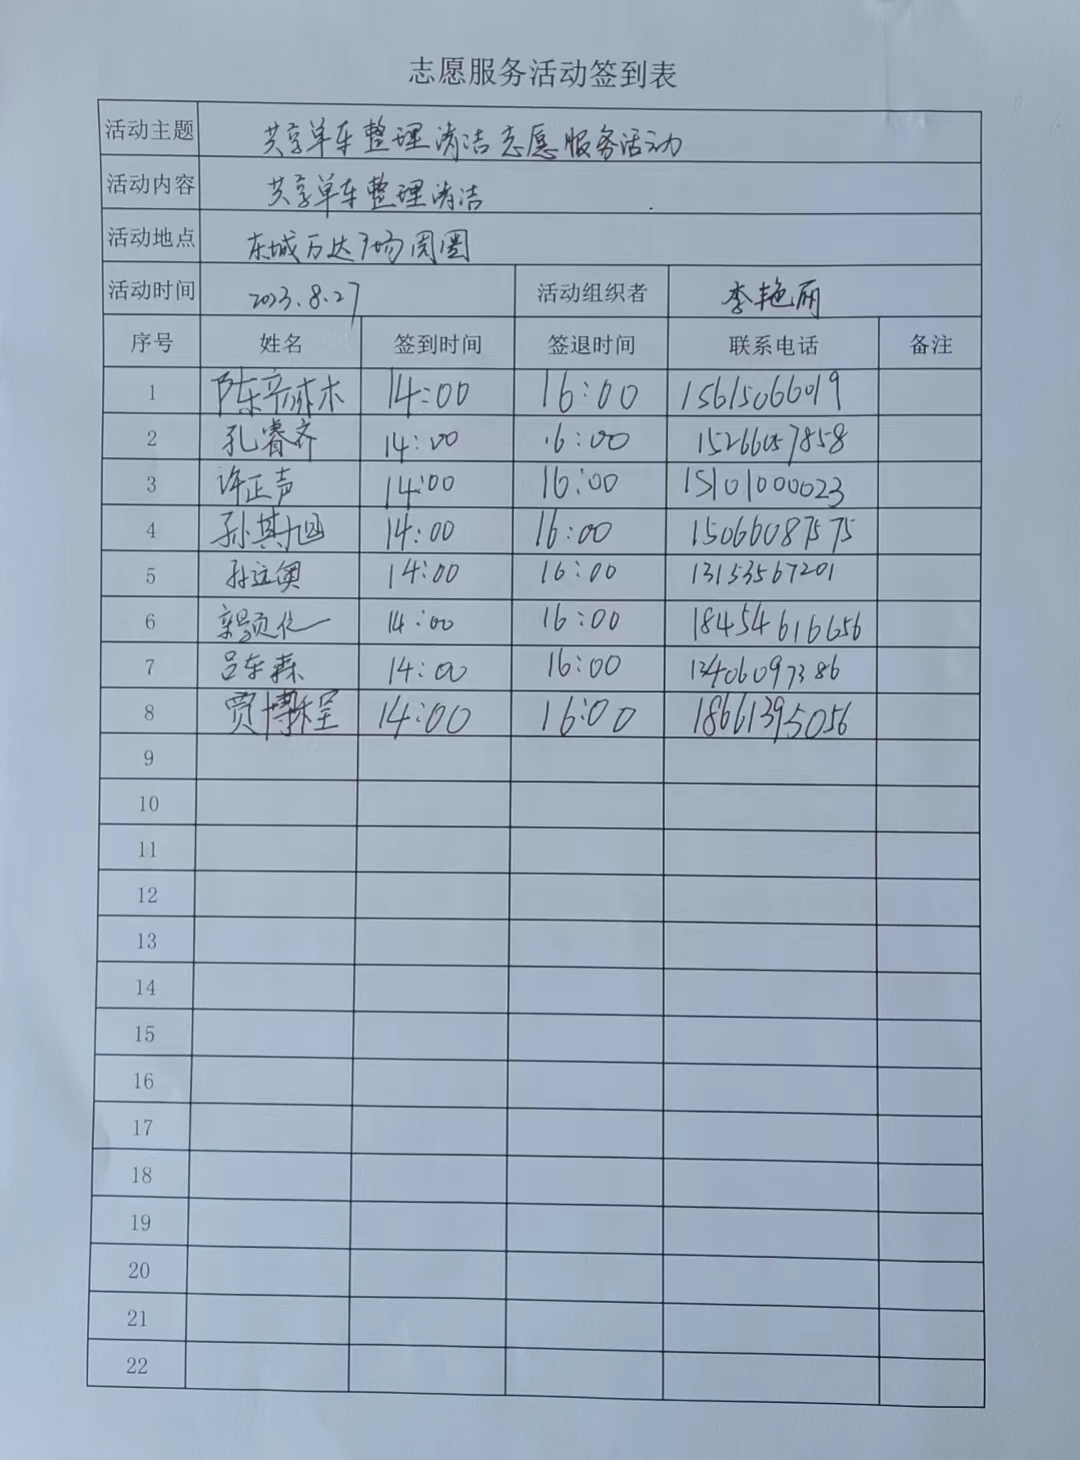 志愿服务活动签到表
活动主题 共享单车整理清洁志愿服务活动
活动内容 共享单车整理清洁
活动地点 东城万达广场周围
活动时间 2023.8.27 活动组织者 李艳丽
序号 姓名 签到时间 签退时间 联系电话 备注
1 14:00 16:00 15615066019
2 孔睿齐 14:00 16:00 15266057858
3 许正声 14:00 16:00 15101000023
4 孙其旭 14:00 16:00 15066087575
5 14:00 16:00 13153567201
6 14:00 16:00 18454616656
7 吕东森 14:00 16:00 13406097386
8 贾博程 14:00 16:00 18661395056
9
10
11
12
13
14
15
16
17
18
19
20
21
22